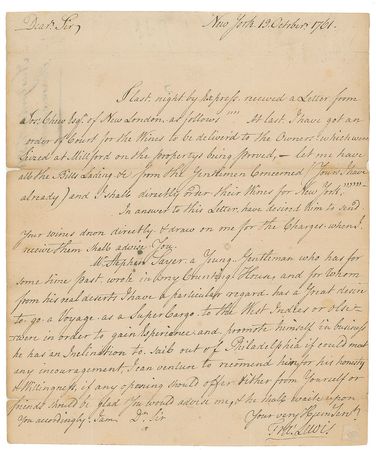 Dear Sir,
New York 19 October 1761.
I last night by Express, received a Letter from
Esqr. of New London as follows "" At last I have got an
order of Court for the Wines to be deliverd to the Owners which were
Seized at Millford on the propertys being proved, – let me have
all the Bills Lading &c from the Gentlemen Concerned (Yours I have
already) and I shall directly order their Wines for New York, """"
In answer to this Letter, have desired him to send
Your wines down directly & draw on me for the Charges, when I
receive them Shall advise You.
Mr. Stephen Sayer a Young Gentleman who has for
some time past, wrote in my Counting House, and for whom
from his real deserts I have a particular regard, has a Great desire
to go a Voyage as a Super Cargo to the West Indias or else-
-where in order to gain Experience and promote himself in business
he has an Inclination to Sail out of Philadelphia if could meet
any encouragement, I can venture to recomend him for his honesty
& Willingness, if any opening should offer either from Yourself or
friends should be glad You would advise me, & he shall waite upon
You accordingly. I am Dr. Sir
Your very Hum. Servt.
Fra: Lewis.